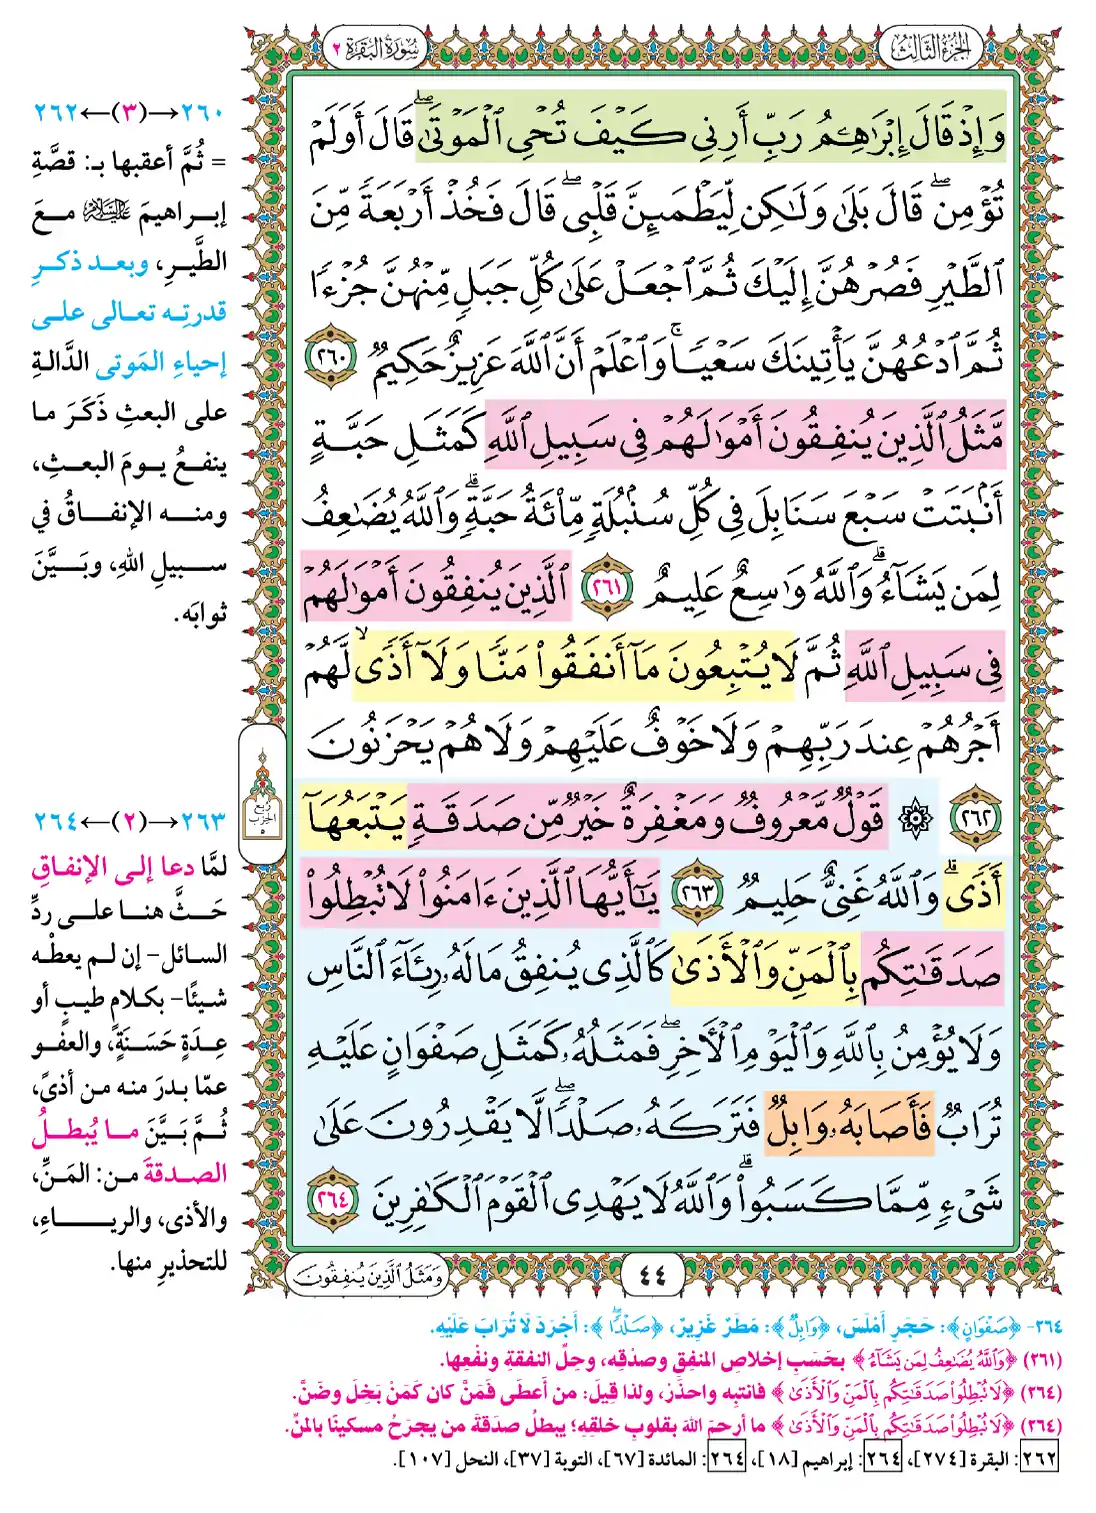 الجزء الثالث
سورة البقرة ٢
وَإِذْ قَالَ إِبْرَٰهِـۧمُ رَبِّ أَرِنِى كَيْفَ تُحْىِ ٱلْمَوْتَىٰ ۖ قَالَ أَوَلَمْ
تُؤْمِن ۖ قَالَ بَلَىٰ وَلَـٰكِن لِّيَطْمَئِنَّ قَلْبِى ۖ قَالَ فَخُذْ أَرْبَعَةً مِّنَ
ٱلطَّيْرِ فَصُرْهُنَّ إِلَيْكَ ثُمَّ ٱجْعَلْ عَلَىٰ كُلِّ جَبَلٍ مِّنْهُنَّ جُزْءًا
ثُمَّ ٱدْعُهُنَّ يَأْتِينَكَ سَعْيًا ۚ وَٱعْلَمْ أَنَّ ٱللَّهَ عَزِيزٌ حَكِيمٌ ٢٦٠
مَّثَلُ ٱلَّذِينَ يُنفِقُونَ أَمْوَٰلَهُمْ فِى سَبِيلِ ٱللَّهِ كَمَثَلِ حَبَّةٍ
أَنۢبَتَتْ سَبْعَ سَنَابِلَ فِى كُلِّ سُنۢبُلَةٍ مِّا۟ئَةُ حَبَّةٍ ۗ وَٱللَّهُ يُضَـٰعِفُ
لِمَن يَشَآءُ ۗ وَٱللَّهُ وَٰسِعٌ عَلِيمٌ ٢٦١ ٱلَّذِينَ يُنفِقُونَ أَمْوَٰلَهُمْ
فِى سَبِيلِ ٱللَّهِ ثُمَّ لَا يُتْبِعُونَ مَآ أَنفَقُوا۟ مَنًّا وَلَآ أَذًى ۙ لَّهُمْ
أَجْرُهُمْ عِندَ رَبِّهِمْ وَلَا خَوْفٌ عَلَيْهِمْ وَلَا هُمْ يَحْزَنُونَ
٢٦٢ ۞ قَوْلٌ مَّعْرُوفٌ وَمَغْفِرَةٌ خَيْرٌ مِّن صَدَقَةٍ يَتْبَعُهَآ
أَذًى ۗ وَٱللَّهُ غَنِىٌّ حَلِيمٌ ٢٦٣ يَـٰٓأَيُّهَا ٱلَّذِينَ ءَامَنُوا۟ لَا تُبْطِلُوا۟
صَدَقَـٰتِكُم بِٱلْمَنِّ وَٱلْأَذَىٰ كَٱلَّذِى يُنفِقُ مَالَهُۥ رِئَآءَ ٱلنَّاسِ
وَلَا يُؤْمِنُ بِٱللَّهِ وَٱلْيَوْمِ ٱلْـَٔاخِرِ ۖ فَمَثَلُهُۥ كَمَثَلِ صَفْوَانٍ عَلَيْهِ
تُرَابٌ فَأَصَابَهُۥ وَابِلٌ فَتَرَكَهُۥ صَلْدًا ۖ لَّا يَقْدِرُونَ عَلَىٰ
شَىْءٍ مِّمَّا كَسَبُوا۟ ۗ وَٱللَّهُ لَا يَهْدِى ٱلْقَوْمَ ٱلْكَـٰفِرِينَ ٢٦٤
٤٤
وَمَثَلُ ٱلَّذِينَ يُنفِقُونَ
ربع
الحزب
٥
٢٦٠→(٣)←٢٦٢
= ثُمَّ أعقبها بـ: قصَّةِ
إبراهيمَ عليه السلام معَ
الطَّيرِ، وبعد ذكرِ
قدرتِه تعالى على
إحياءِ المَوتى الدَّالةِ
على البعثِ ذَكَرَ ما
ينفعُ يومَ البعثِ،
ومنه الإنفاقُ في
سبيلِ اللهِ، وبَيَّنَ
ثوابَه.
٢٦٣→(٢)←٢٦٤
لمَّا دعا إلى الإنفاقِ
حَثَّ هنا على ردِّ
السائل- إن لم يعطْه
شيئًا- بكلامٍ طيبٍ أو
عِدَةٍ حَسَنَةٍ، والعفو
عمّا بدرَ منه من أذىً،
ثُمَّ بَيَّنَ ما يُبطلُ
الصدقةَ من: المَنِّ،
والأذى، والرياءِ،
للتحذيرِ منها.
٢٦٤- ﴿صَفْوَانٍ﴾: حَجَرٍ أَمْلَسَ، ﴿وَابِلٌ﴾: مَطَرٌ غَزِيرٌ، ﴿صَلْدًا ۖ﴾: أَجْرَدَ لَا تُرَابَ عَلَيْهِ.
(٢٦١) ﴿وَٱللَّهُ يُضَـٰعِفُ لِمَن يَشَآءُ﴾ بحَسَبِ إخلاصِ المنفقِ وصدْقِه، وحِلِّ النفقةِ ونَفْعِها.
(٢٦٤) ﴿لَا تُبْطِلُوا۟ صَدَقَـٰتِكُم بِٱلْمَنِّ وَٱلْأَذَىٰ﴾ فانتبِه واحذَرْ، ولذا قِيلَ: من أَعطَى فَمَنَّ كان كَمَنْ بَخِلَ وضَنَّ.
(٢٦٤) ﴿لَا تُبْطِلُوا۟ صَدَقَـٰتِكُم بِٱلْمَنِّ وَٱلْأَذَىٰ﴾ ما أرحمَ اللهَ بقلوبِ خلقِهِ؛ يبطلُ صدَقةَ من يجرَحُ مسكينًا بالمنِّ.
٢٦٢: البقرة [٢٧٤]، ٢٦٤: إبراهيم [١٨]، ٢٦٤: المائدة [٦٧]، التوبة [٣٧]، النحل [١٠٧].